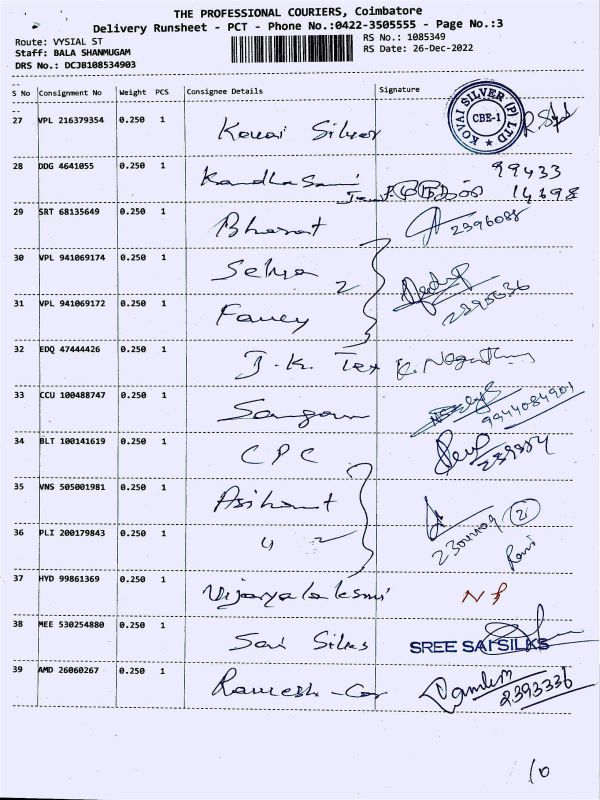 THE PROFESSIONAL COURIERS, Coimbatore
Delivery Runsheet - PCT - Phone No.:0422-3505555 - Page No.:3
Route: VYSIAL ST RS No.: 1085349
Staff: BALA SHANMUGAM RS Date: 26-Dec-2022
DRS No.: DCJB108534903
S No Consignment No Weight PCS Consignee Details Signature
27 VPL 216379354 0.250 1 Kovai Silver KOVAI SILVER (P) LTD CBE-1
28 DDG 4641055 0.250 1 Kandha Sami 99433
14698
29 SRT 68135649 0.250 1 Bharat 2396088
30 VPL 941069174 0.250 1 2
31 VPL 941069172 0.250 1 Fancy
32 EDQ 47444426 0.250 1 J.K. Tex
33 CCU 100488747 0.250 1 Sangam 9944084901
34 BLT 100141619 0.250 1 CPC
35 VNS 505001981 0.250 1 Asihant 2
36 PLI 200179843 0.250 1 2 Ravi
37 HYD 99861369 0.250 1 Vijayalaksmi NP
38 MEE 530254880 0.250 1 Sai Silks SREE SAI SILKS
39 AMD 26060267 0.250 1 Ramesh 2393336
10